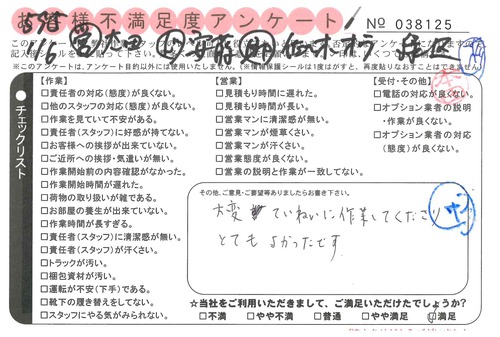 お客様不満足度アンケート
No 038125
【作業】
□責任者の対応(態度)が良くない。
□他のスタッフの対応(態度)が良くない。
□作業を見ていて不安がある。
□責任者(スタッフ)に好感が持てない。
□お客様への挨拶が出来ていない。
□ご近所への挨拶・気遣いが無い。
□作業開始前の内容確認がなかった。
□作業開始時間が遅れた。
□荷物の取り扱いが雑である。
□お部屋の養生が出来ていない。
□作業時間が長すぎる。
□責任者(スタッフ)に清潔感が無い。
□責任者(スタッフ)が汗くさい。
□トラックが汚い。
□梱包資材が汚い。
□運転が不安(下手)である。
□靴下の履き替えをしてない。
□スタッフにやる気がみられない。
【営業】
□見積もり時間に遅れた。
□見積もり時間が長い。
□営業マンに清潔感が無い。
□営業マンが煙草くさい。
□営業マンが汗くさい。
□営業態度が良くない。
□営業の説明と作業が一致してない。
【受付・その他】
□電話の対応が良くない。
□オプション業者の説明
・作業が良くない。
□オプション業者の対応
(態度)が良くない。
チェックリスト
その他、ご意見・ご要望等ありましたらお書き下さい。
大変ていねいに作業してくださり
とてもよかったです
☆当社をご利用いただきまして、ご満足いただけたでしょうか?
□不満 □やや不満 □普通 □やや満足 □満足